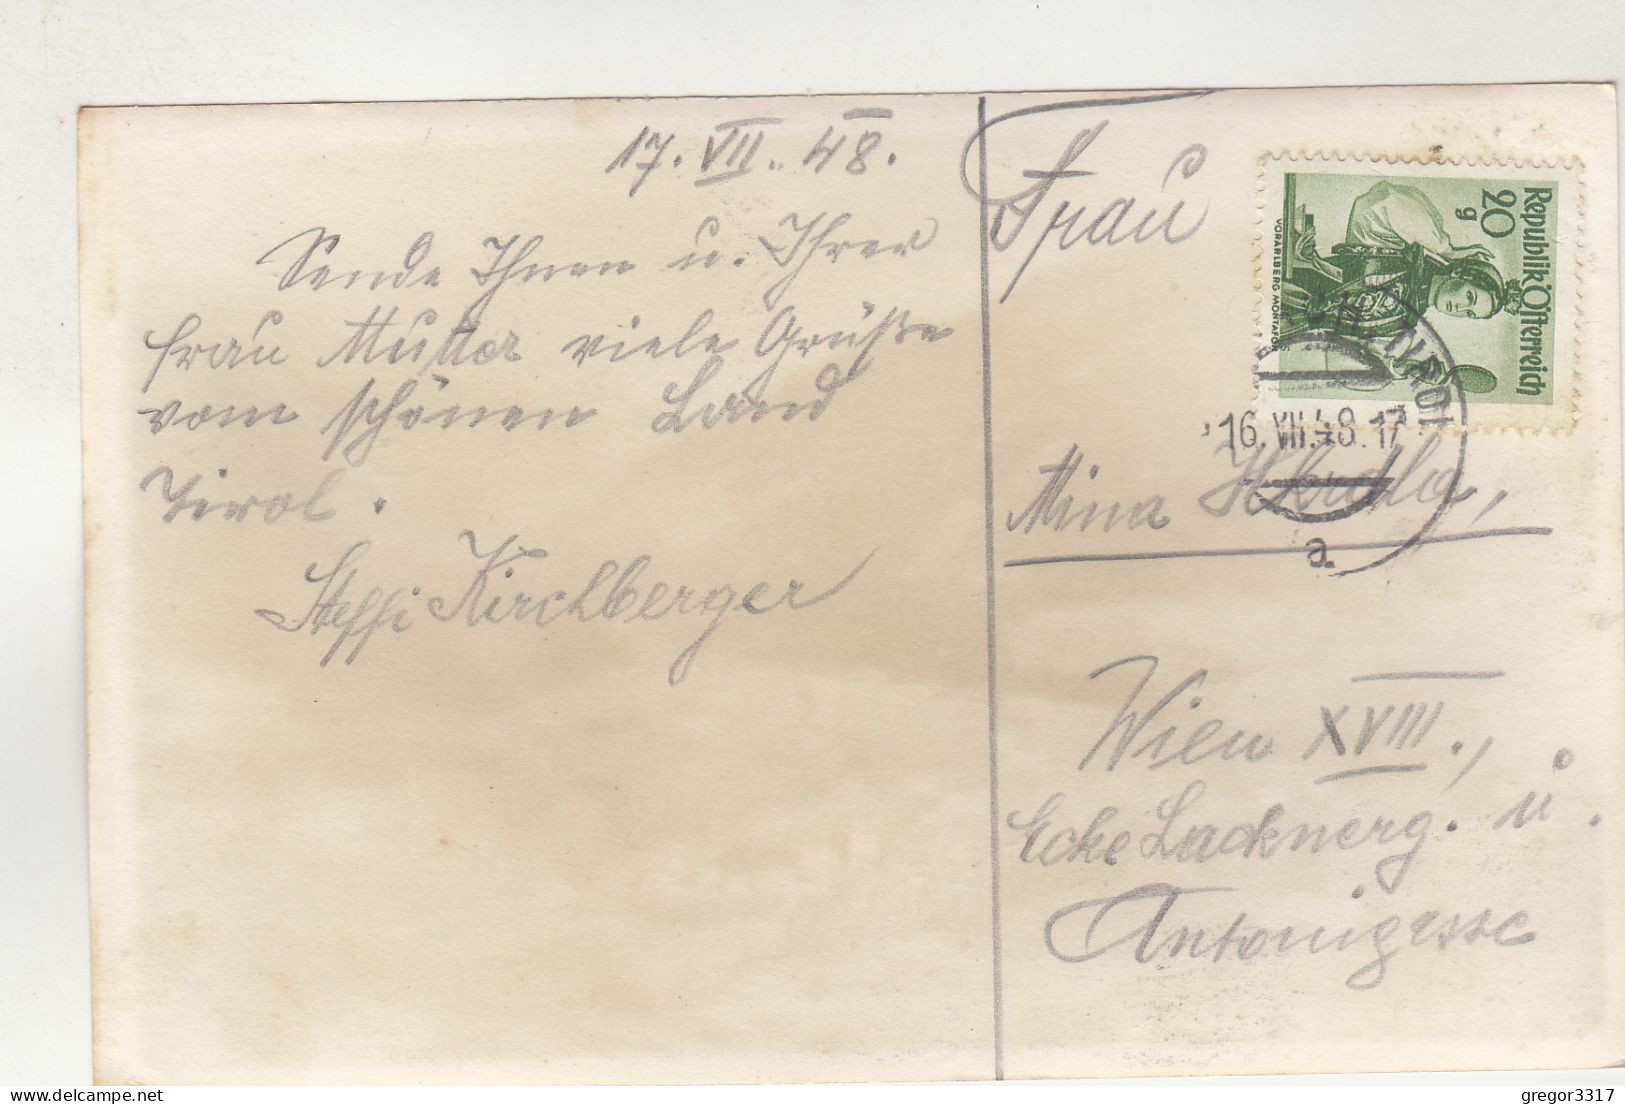 17. VII. 48.
Sende Ihnen u. Ihrer
Frau Mutter viele Grüße
vom schönen Land
Tirol.
Steffi Kirchberger
Frau
Mina
Wien XVIII.,
Ecke Lacknerg. u.
Antonigasse
Republik Österreich
20 g
VORARLBERG MONTAFON
16.VII.48.17
TIROL
a
gregor3317